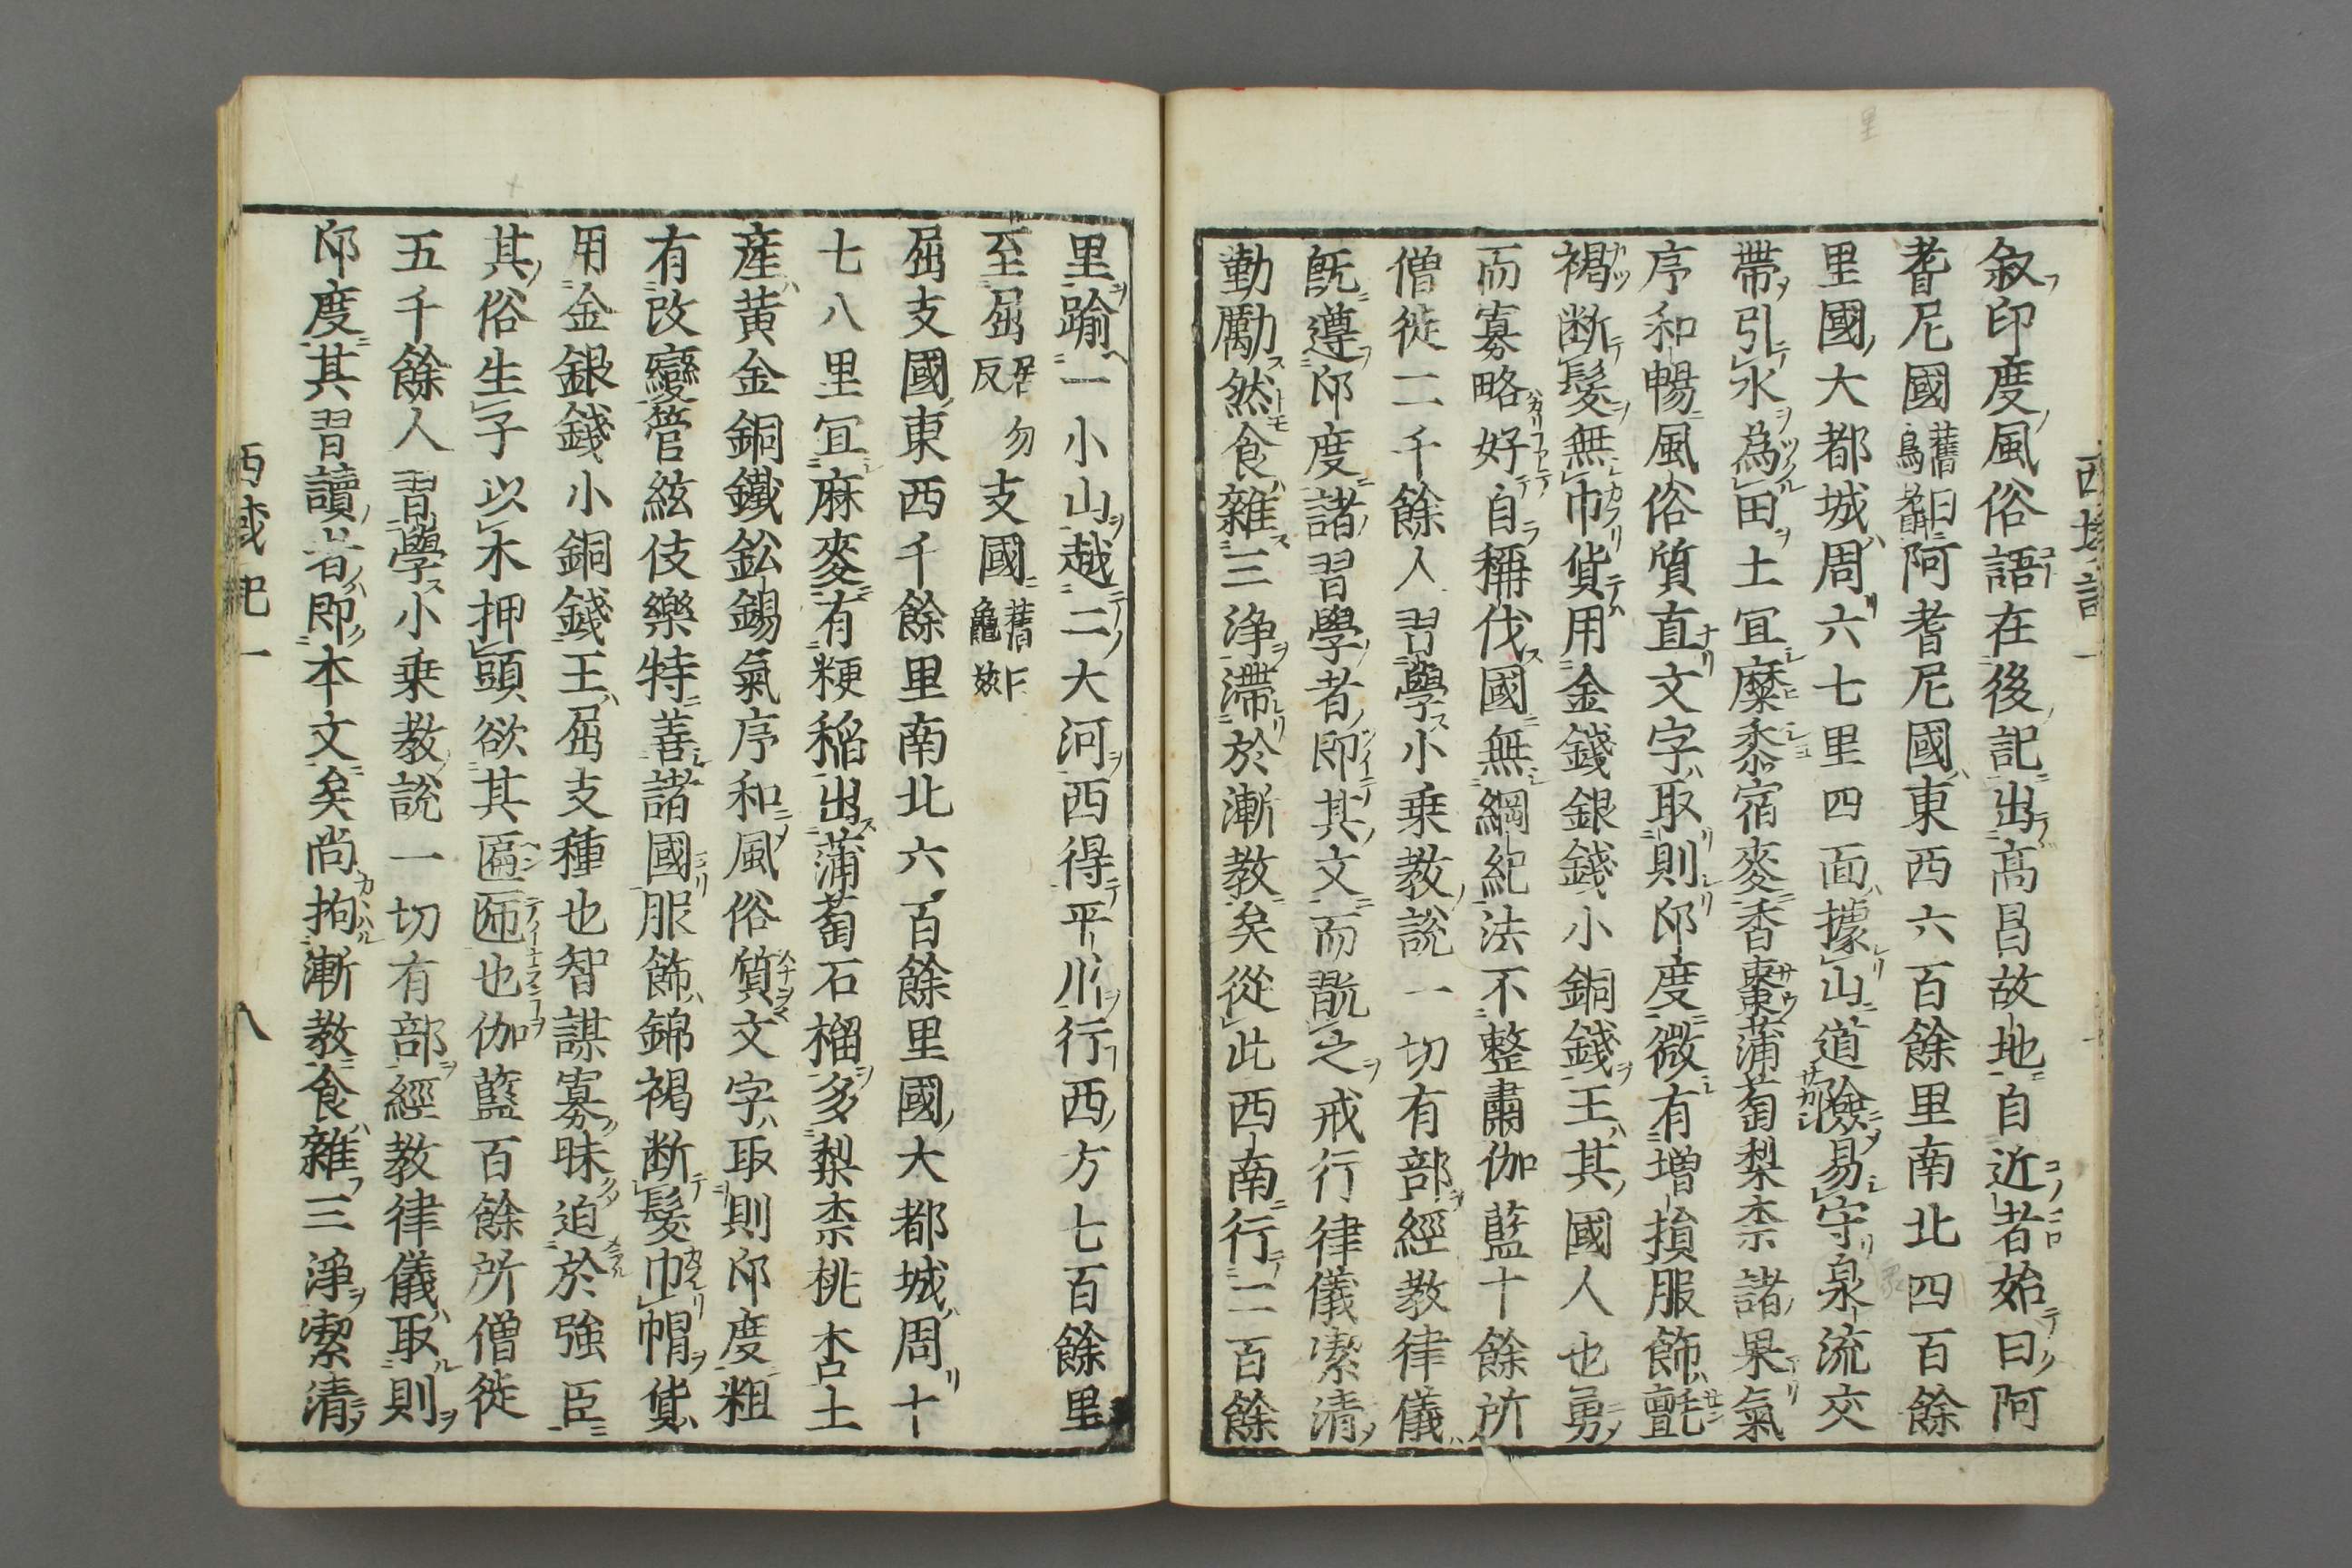 西域記一
叙印度風俗語在後記出高昌故地自近者始曰阿
耆尼國舊曰烏耆阿耆尼國東西六百餘里南北四百餘
里國大都城周六七里四面據山道險易守泉流交
帶引水為田土宜糜黍宿麥香棗蒲萄梨柰諸果氣
序和暢風俗質直文字取則印度微有增損服飾氎
褐断髮無巾貨用金錢銀錢小銅錢王其國人也勇
而寡略好自稱伐國無綱紀法不整肅伽藍十餘所
僧徒二千餘人習學小乗教說一切有部經教律儀
既遵印度諸習學者即其文而翫之戒行律儀潔清
勤勵然食雜三浄滯於漸教矣從此西南行二百餘
里踰一小山越二大河西得平川行西方七百餘里
至屈居勿反支國舊曰龜玆
屈支國東西千餘里南北六百餘里國大都城周十
七八里冝麻麥有粳稲出蒲萄石榴多梨柰桃杏土
産黄金銅鐵鈆錫氣序和風俗質文字取則印度粗
有改變管絃伎樂特善諸國服飾錦褐断髮巾帽貨
用金銀錢小銅錢王屈支種也智謀寡昧迫於強臣
其俗生子以木押頭欲其匾㔸也伽藍百餘所僧徒
五千餘人習學小乗教說一切有部經教律儀取則
印度其習讀者即本文矣尚拘漸教食雜三浄潔清
西域記一
八